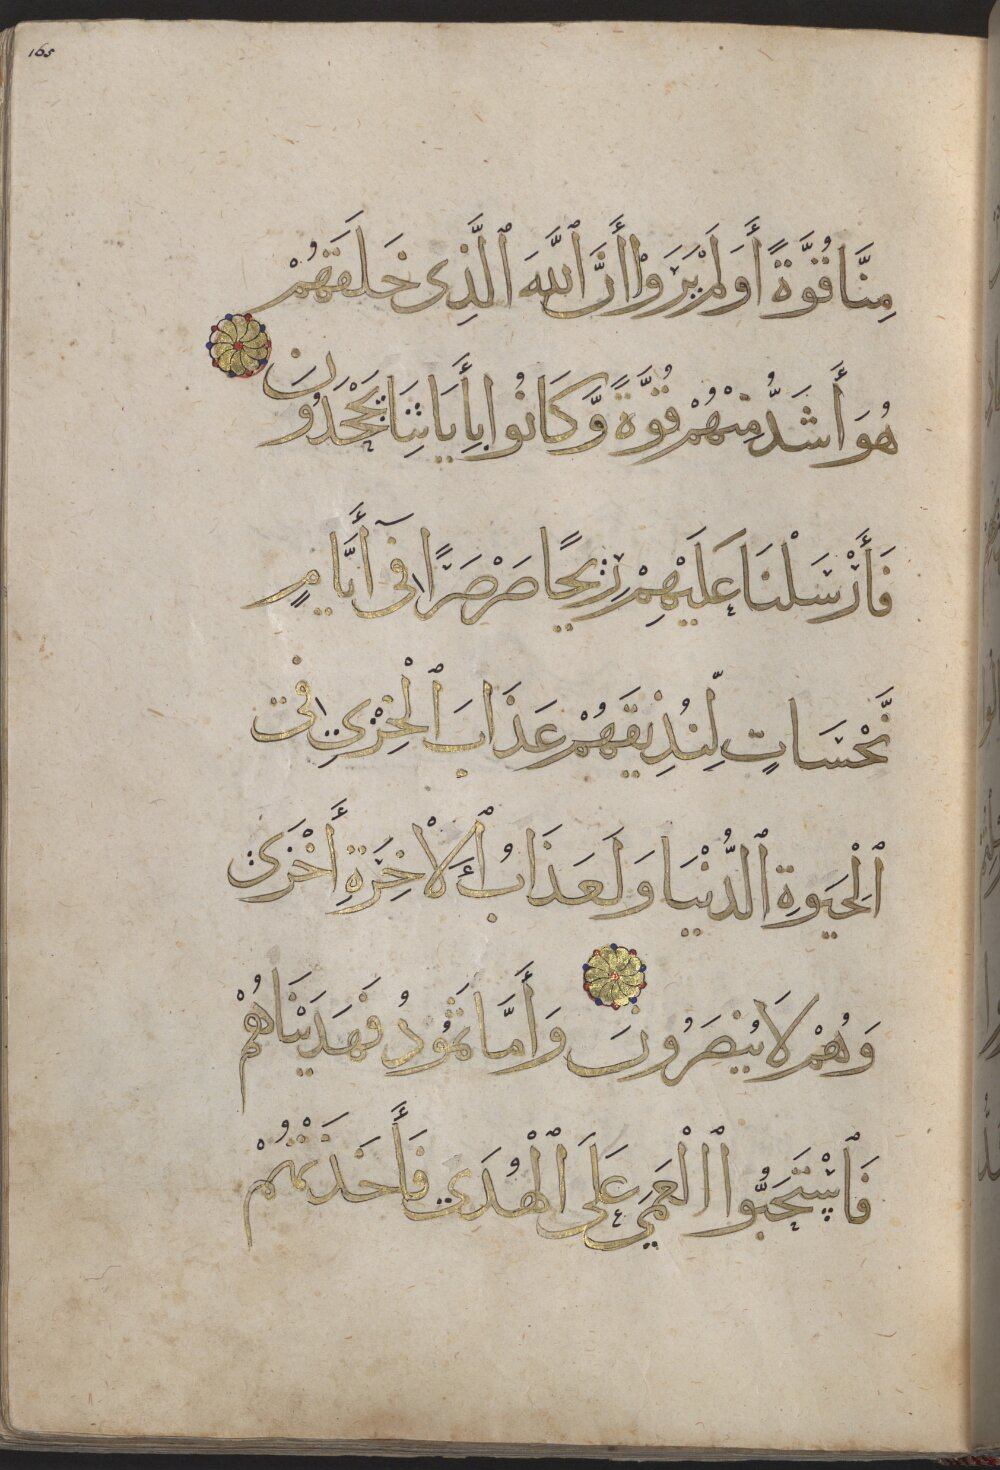 165
مِنَّا قُوَّةً أَوَلَمْ يَرَوْا أَنَّ ٱللَّهَ ٱلَّذِى خَلَقَهُمْ
هُوَ أَشَدُّ مِنْهُمْ قُوَّةً وَّكَانُوا بِأَيَاتِنَا يَجْحَدُونَ
فَأَرْسَلْنَا عَلَيْهِمْ رِيحًا صَرْصَرًا فِىٓ أَيَّامٍ
نَّحْسَاتٍ لِّنُذِيقَهُمْ عَذَابَ ٱلْخِزْىِ فِى
ٱلْحَيَوةِ ٱلدُّنْيَا وَلَعَذَابُ ٱلْأَخِرَةِ أَخْزَى
وَهُمْ لَا يُنْصَرُونَ وَأَمَّا ثَمُودُ فَهَدَيْنَاهُمْ
فَٱسْتَحَبُّوا ٱلْعَمَى عَلَى ٱلْهُدَى فَأَخَذَتْهُمْ